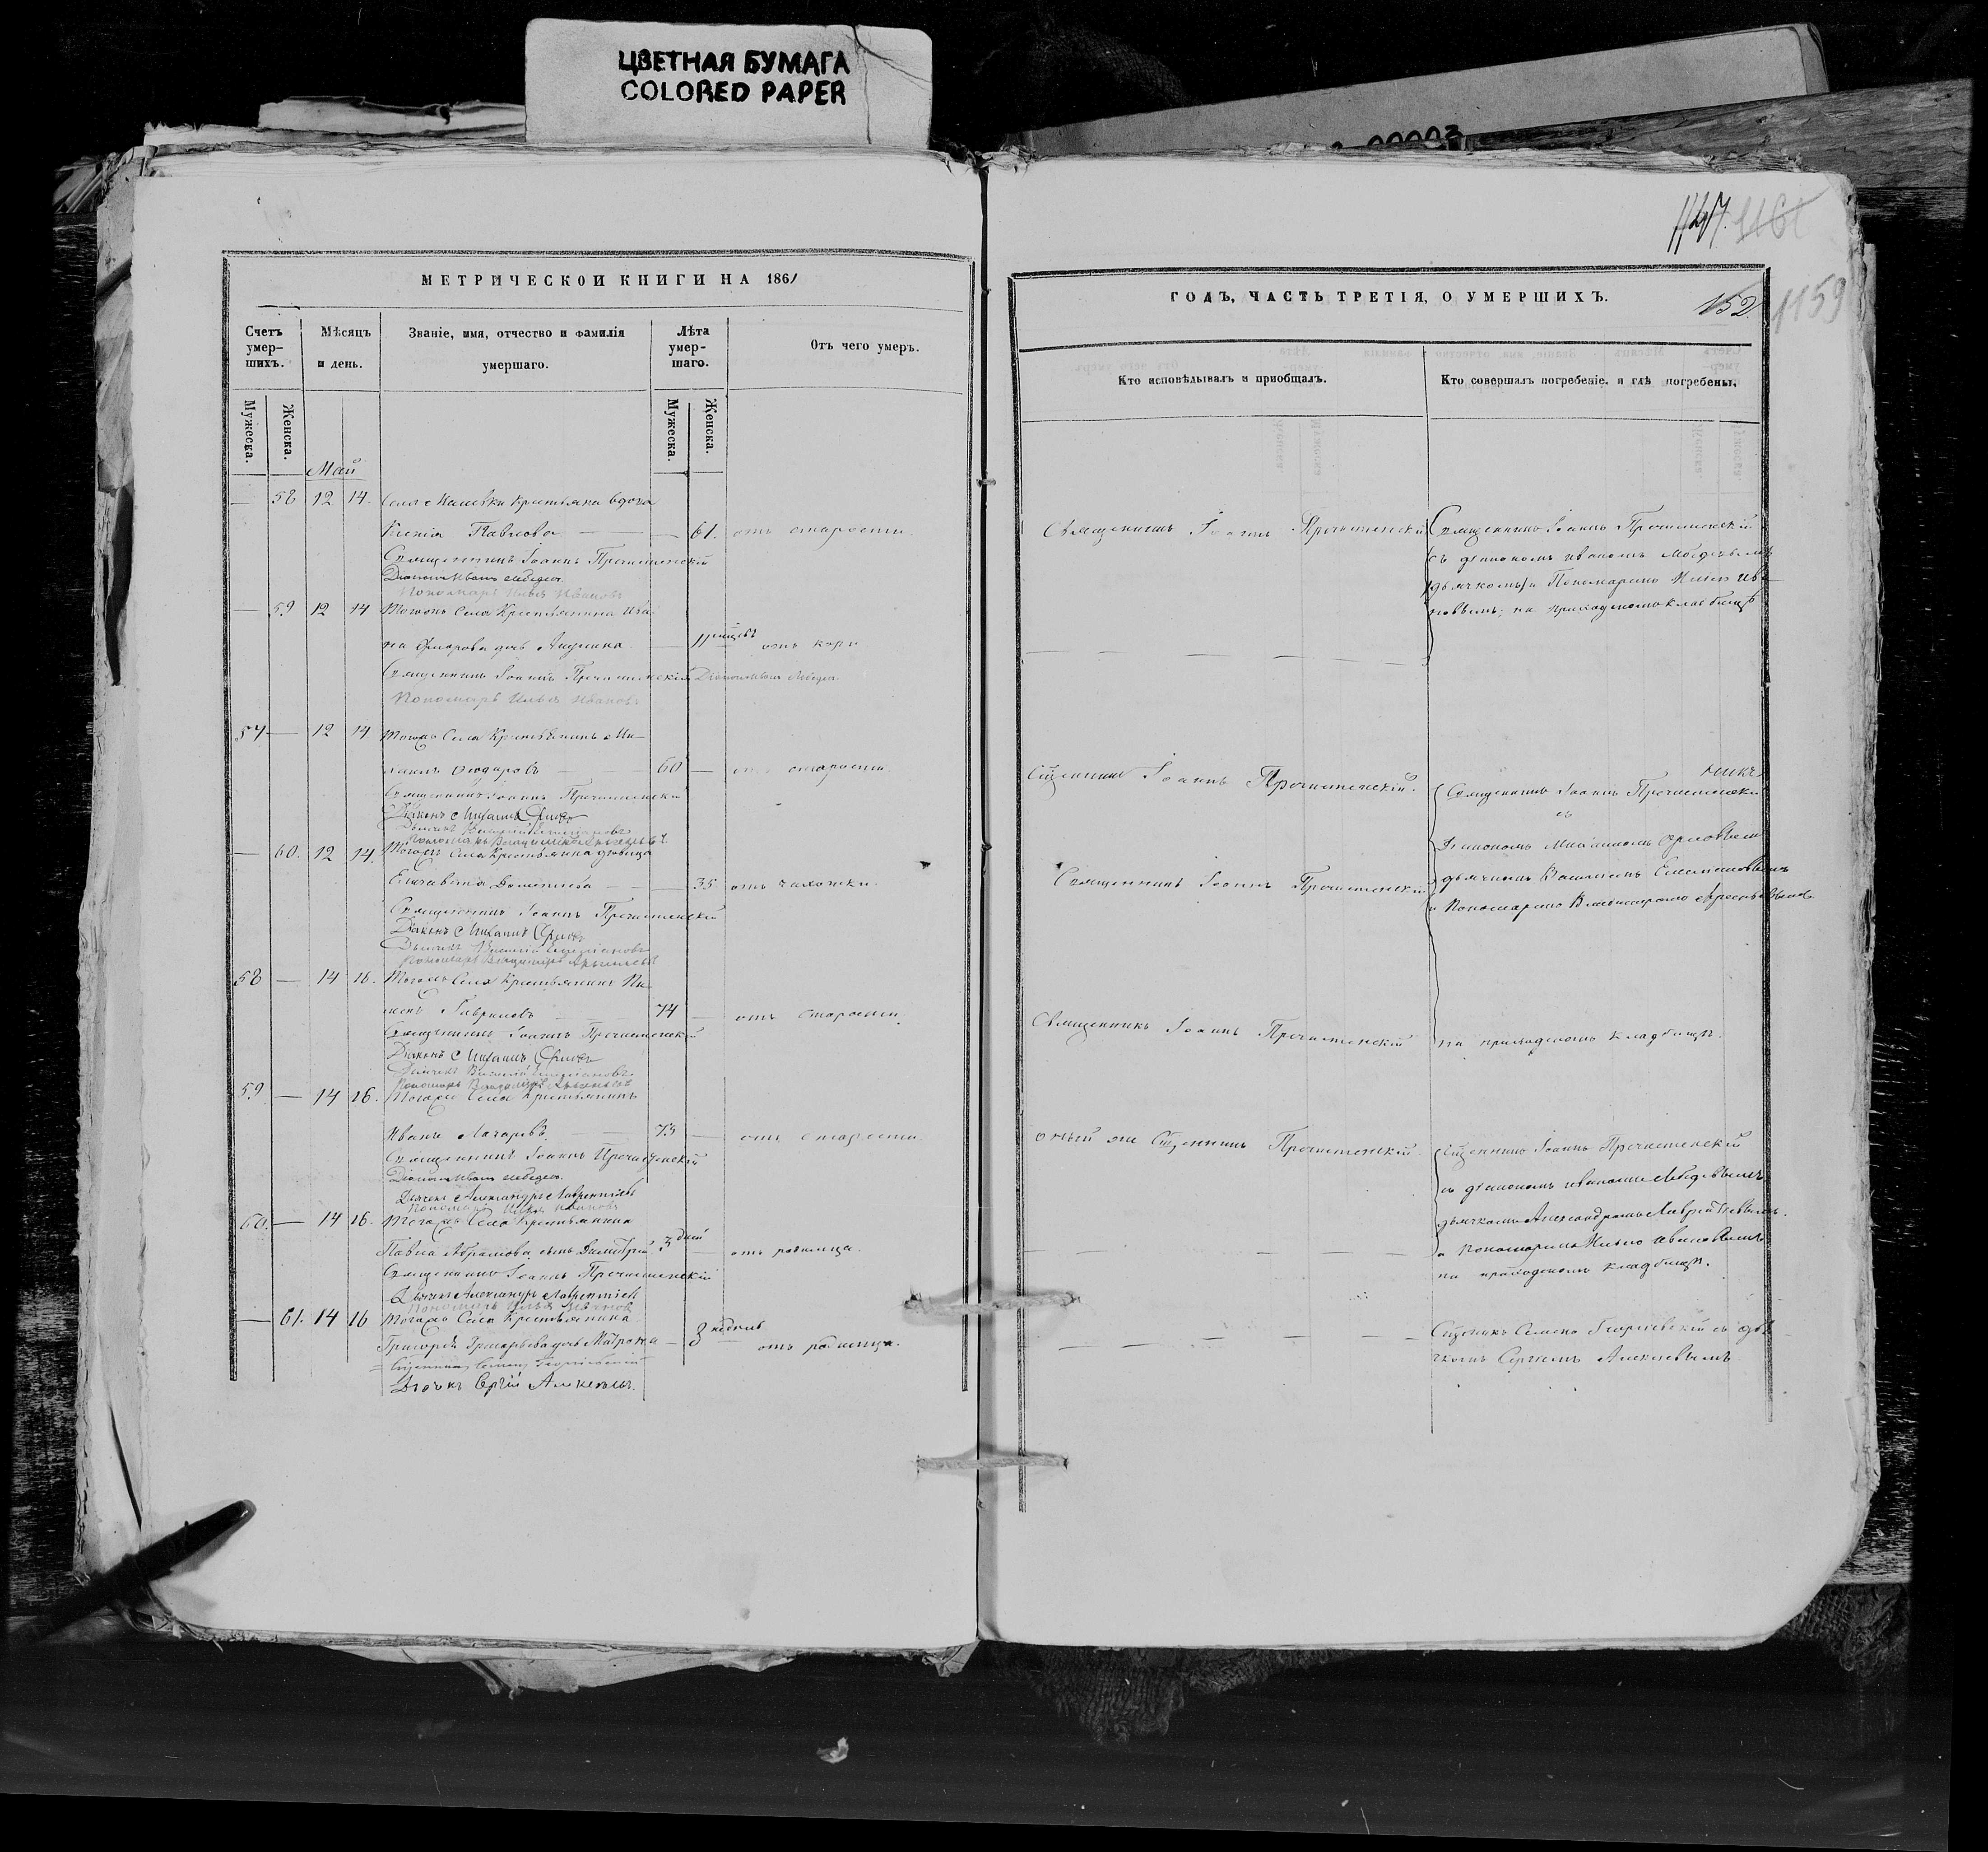 ЦВЕТНАЯ БУМАГА
COLORED PAPER
МЕТРИЧЕСКОЙ КНИГИ НА 1861
Счетъ умер-шихъ.
Мѣсяцъ и день.
Званіе, имя, отчество и фамилія умершаго.
Лѣта умер-шаго.
Отъ чего умеръ.
Мужеска.
Женска.
Мужеска.
Женска.
Май
— 58 12 14. Села крестьянка вдова
Ксенія Павлова — — 61. отъ старости.
Священникъ Іоаннъ Пречистенскій
Діаконъ Иванъ Лебедевъ.
Пономарь Илья Ивановъ
— 59 12 14 Тогожъ Села Крестьянина Ива
на дочь Акулина — 11 отъ кори
Священникъ Іоаннъ Пречистенскій Діаконъ Иванъ Лебедевъ.
Пономарь Илья Ивановъ
57 — 12 14 Тогожъ Села Крестьянинъ Ми-
хаилъ Ѳедоровъ — 60 — отъ старости.
Священникъ Іоаннъ Пречистенскій
Діаконъ Михаилъ Орловъ
Дьячекъ Василій
Пономарь Владиміръ
— 60. 12 14. Тогожъ Села Крестьянина девица
Елизавета — — 35 отъ чахотки.
Священникъ Іоаннъ Пречистенскій
Діаконъ Михаилъ Орловъ
Дьячекъ Василій
Пономарь Владиміръ
58 — 14 16. Тогожъ Села Крестьянинъ Пи-
менъ Гавриловъ 74 — отъ старости.
Священникъ Іоаннъ Пречистенскій
Діаконъ Михаилъ Орловъ
Дьячекъ Василій
Пономарь Владиміръ
59 — 14 16. Тогожъ Села Крестьянинъ
Иванъ Лазаревъ. — 73 — отъ старости.
Священникъ Іоаннъ Пречистенскій
Діаконъ Иванъ Лебедевъ.
Дьячекъ Александръ Лаврентьевъ
Пономарь Илья Ивановъ
60. — 14 16. Тогожъ Села Крестьянина
Павла Абрамова сынъ Димитрій 3 дней — отъ родимца.
Священникъ Іоаннъ Пречистенскій
Дьячекъ Александръ Лаврентьевъ
Пономарь Илья Ивановъ
— 61. 14 16 Тогожъ Села Крестьянина
Григорія Григорьева дочь Матрона — 3 недель отъ родимца.
Священникъ Семенъ Георгіевскій
Дьячекъ Сергій Алексеевъ.
1147. 1161
ГОДЪ, ЧАСТЬ ТРЕТІЯ, О УМЕРШИХЪ.
152. 1159
Кто исповѣдывалъ и пріобщалъ.
Кто совершалъ погребеніе, и гдѣ погребены.
Священникъ Іоаннъ Пречистенскій
Священникъ Іоаннъ Пречистенскій
съ діакономъ Иваномъ Лебедевымъ
и Пономаремъ Ильею Ива-
новымъ; на приходскомъ кладбищѣ
Сщенникъ Іоаннъ Пречистенскій.
Священникъ Іоаннъ Пречистенскій
съ
Діакономъ Михаиломъ Орловымъ
Священникъ Іоаннъ Пречистенскій
дьячкомъ Василіемъ
и Пономаремъ Владиміромъ
Священникъ Іоаннъ Пречистенскій
на приходскомъ кладбищѣ.
оный же Сщенникъ Пречистенскій.
Сщенникъ Іоаннъ Пречистенскій
съ діакономъ Иваномъ Лебедевымъ
дьячкомъ Александромъ Лаврентьевымъ.
и Пономаремъ Ильею Ивановымъ
на приходскомъ кладбищѣ.
Сщенникъ Семенъ Георгіевскій съ дья-
чкомъ Сергѣемъ Алексеевымъ